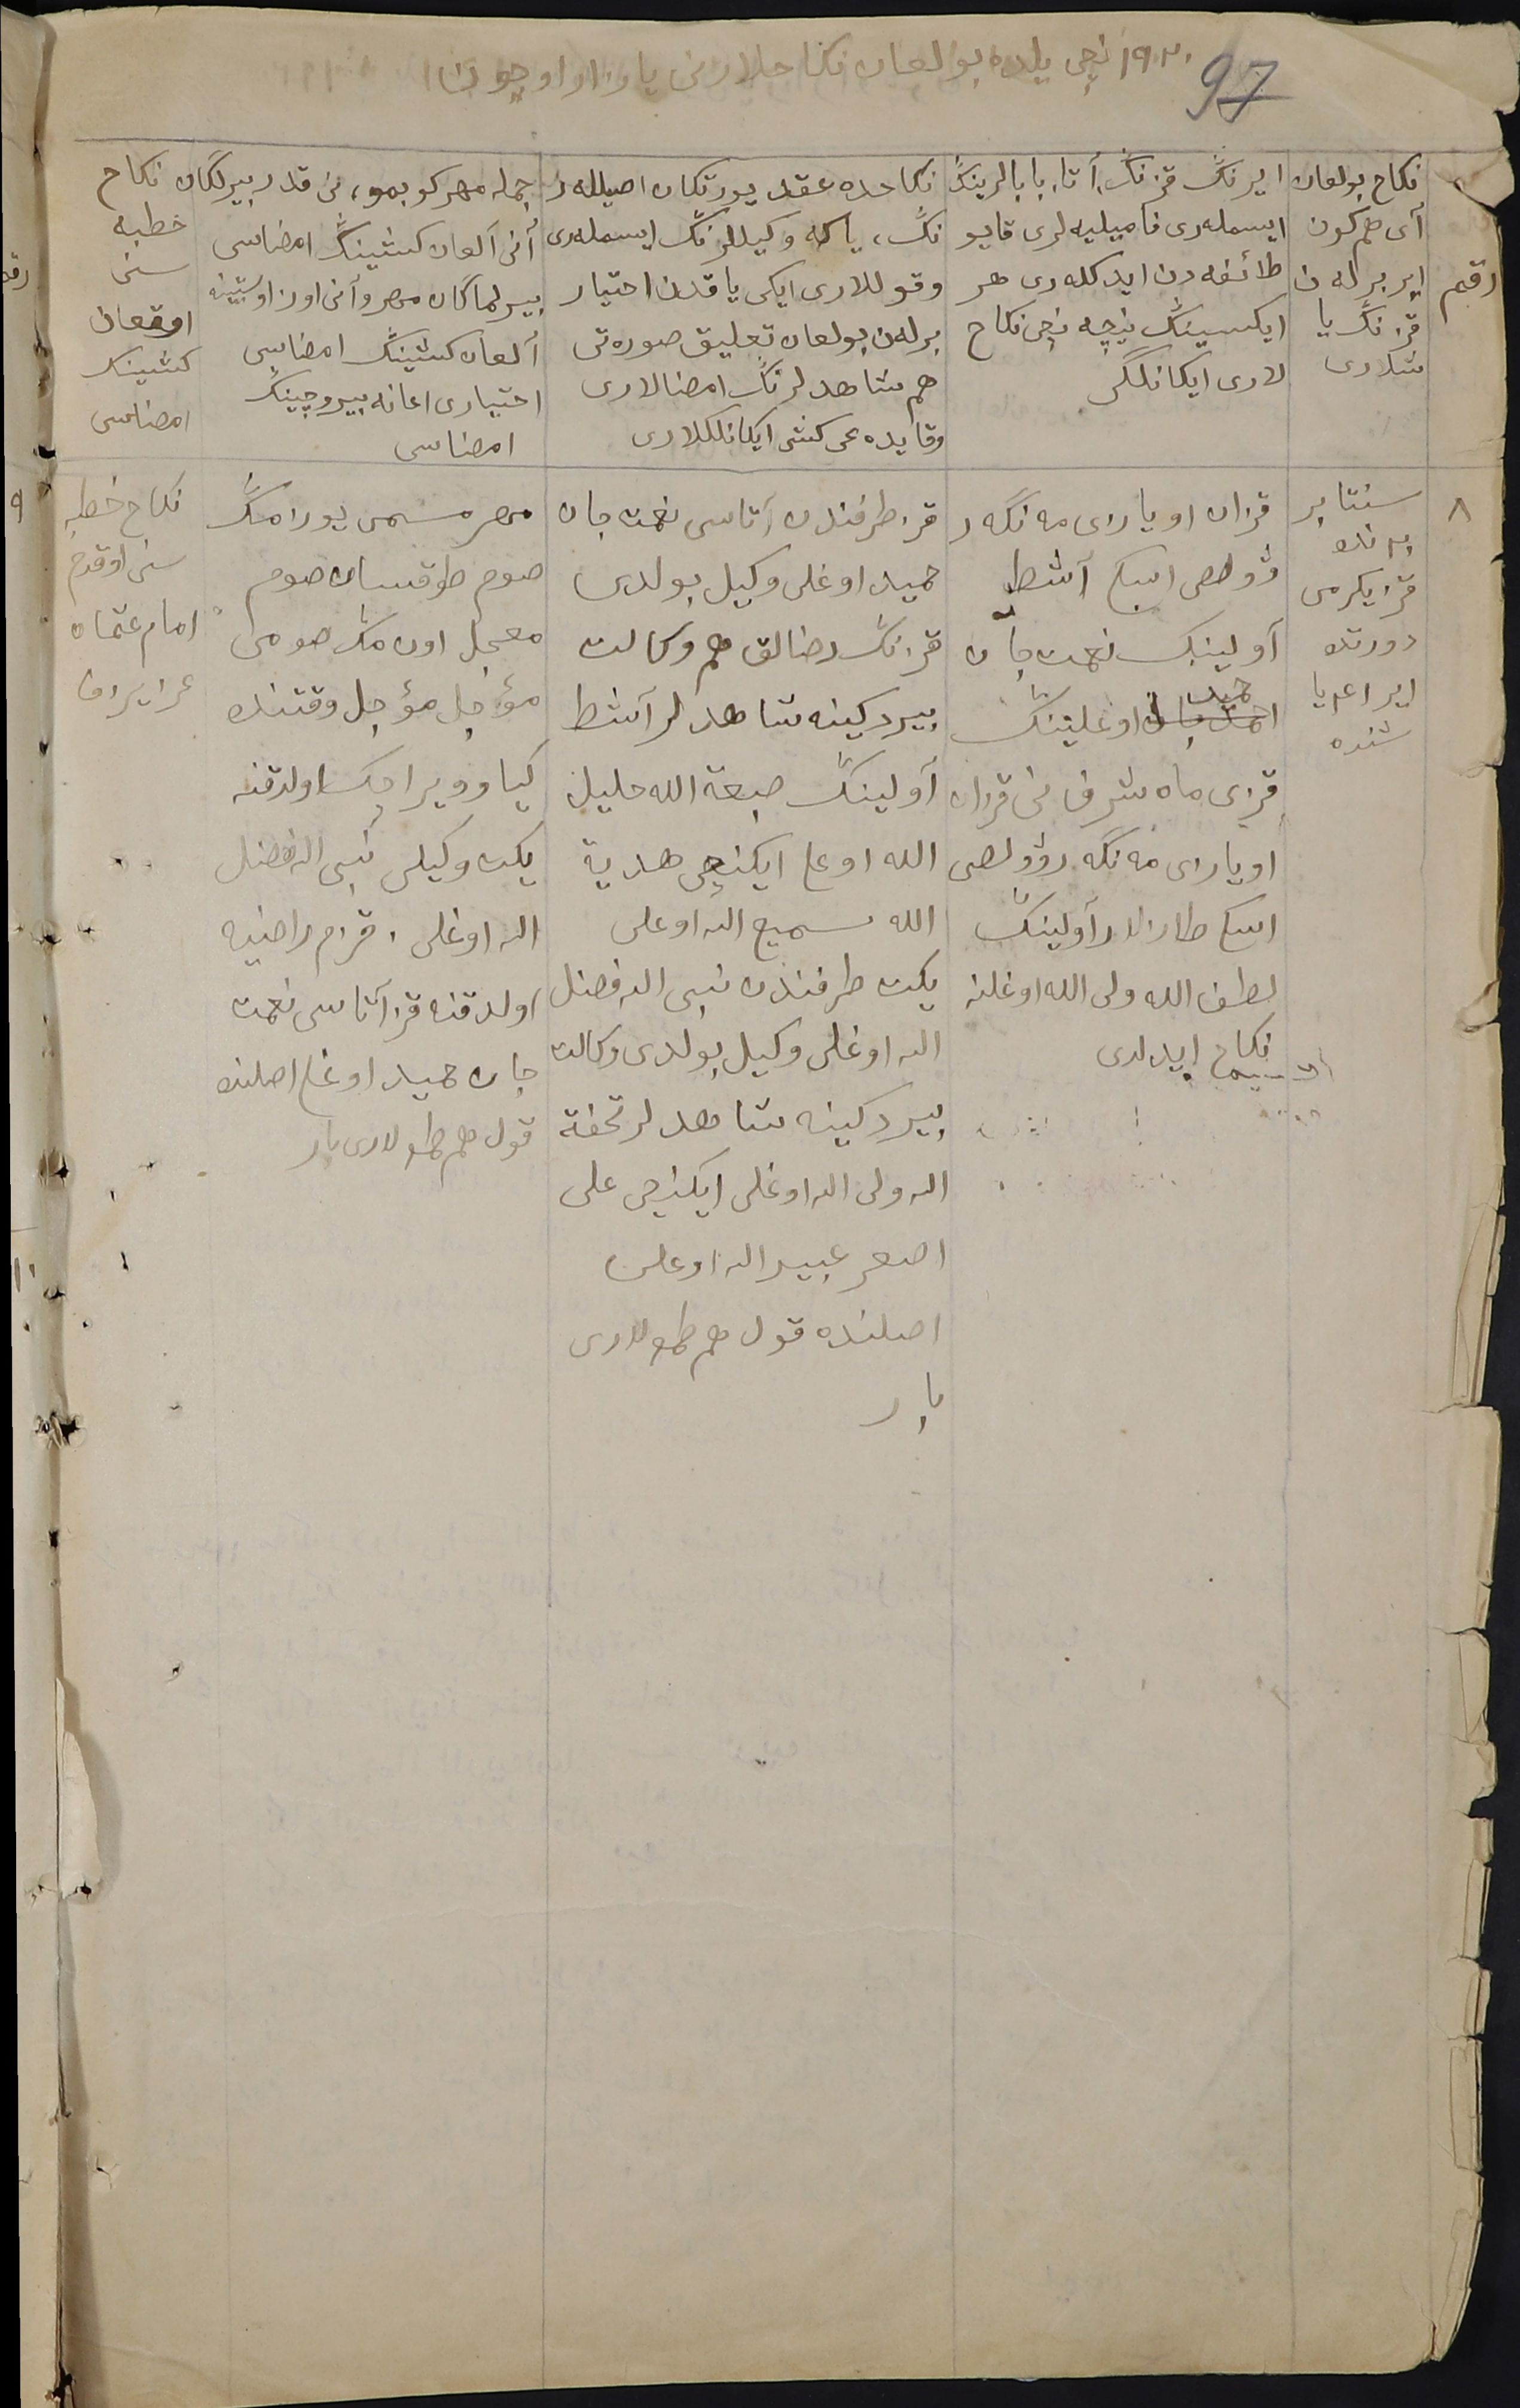 ۱۹۲۰ نچی یلده بولعان نکاحلارنی یازار اوچون
97
رقم
نکاح بولعان
آی هم کون
ایر برله ن
قزنڭ یا
شلاری
ایرنڭ قزنڭ آتا، بابالرینڭ
ایسمله‌ری فامیلیه‌لری قایو
طائفه دن ایدکله‌ری هر
ایکسینڭ نیچه نچی نکاح
لاری ایکانلگی
نکاحده عقد یورتکان اصیلله‌ر
نڭ، یاکه وکیللرنڭ ایسمله‌ری
وقوللاری ایکی یاقدن احتیار
برله‌ن بولعان تعلیق صوره‌تی
هم شاهدلرنڭ امضالاری
وقایده عی کشی ایکانلکلاری
جمله مهر کوبمو، نی قدر بیرلگان
آنی آلعان کشینڭ امضاسی
بیرلماگان مهر وآنی اوز اوستینه
آلعان کشینڭ امضاسی
احتیاری اعانه بیروچینڭ
امضاسی
نکاح
خطبه
سنی
اوقعان
کشینڭ
امضاسی
۸
سنتابر
برنده
قز یکرمی
دورتده
ایر اعریا
شنده
قزان اویازی مه نگه ر
ۋولصی اسکی آشط
آولینڭ نعمت جان
حمید اوغلینڭ
قزی ماه شرف نی قزان
اویازی مه نگه ر ۋولصی
اسکی طازلار آولینڭ
لطف الله ولی الله اوغلنه
نکاح ایدلدی
قز طرفندن آتاسی نعمت جان
حمید اوغلی وکیل بولدی
قزنڭ رضالق هم وکالت
بیردکینه شاهدلر آشط
آولینڭ صبعة الله خلیل
الله اوعلی ایکنچی هدیة
الله سمیع الله اوعلی
یکت طرفندن نبی الله فضل
الله اوغلی وکیل بولدی وکالت
بیردکینه شاهدلر تحفة
الله ولی الله اوغلی ایکنچی علی
اصعر عبید الله اوعلی
اصلنده قول هم طمغالاری
بار
مهر مسمی یوز امڭ
صوم طوقسان صوم
معجل اون مڭ صومی
مؤجل مؤجل وقتنده
کیاو ویراجک اولدقنه
یکت وکیلی نبی الله فضل
الله اوغلی، قزم راضیه
اولدقنه قز آتاسی نعمت
جان حمید اوغلی اصلنده
قول هم طمغالاری بار
نکاح خطبه
سنی اوقدم
امام عتمان
۹